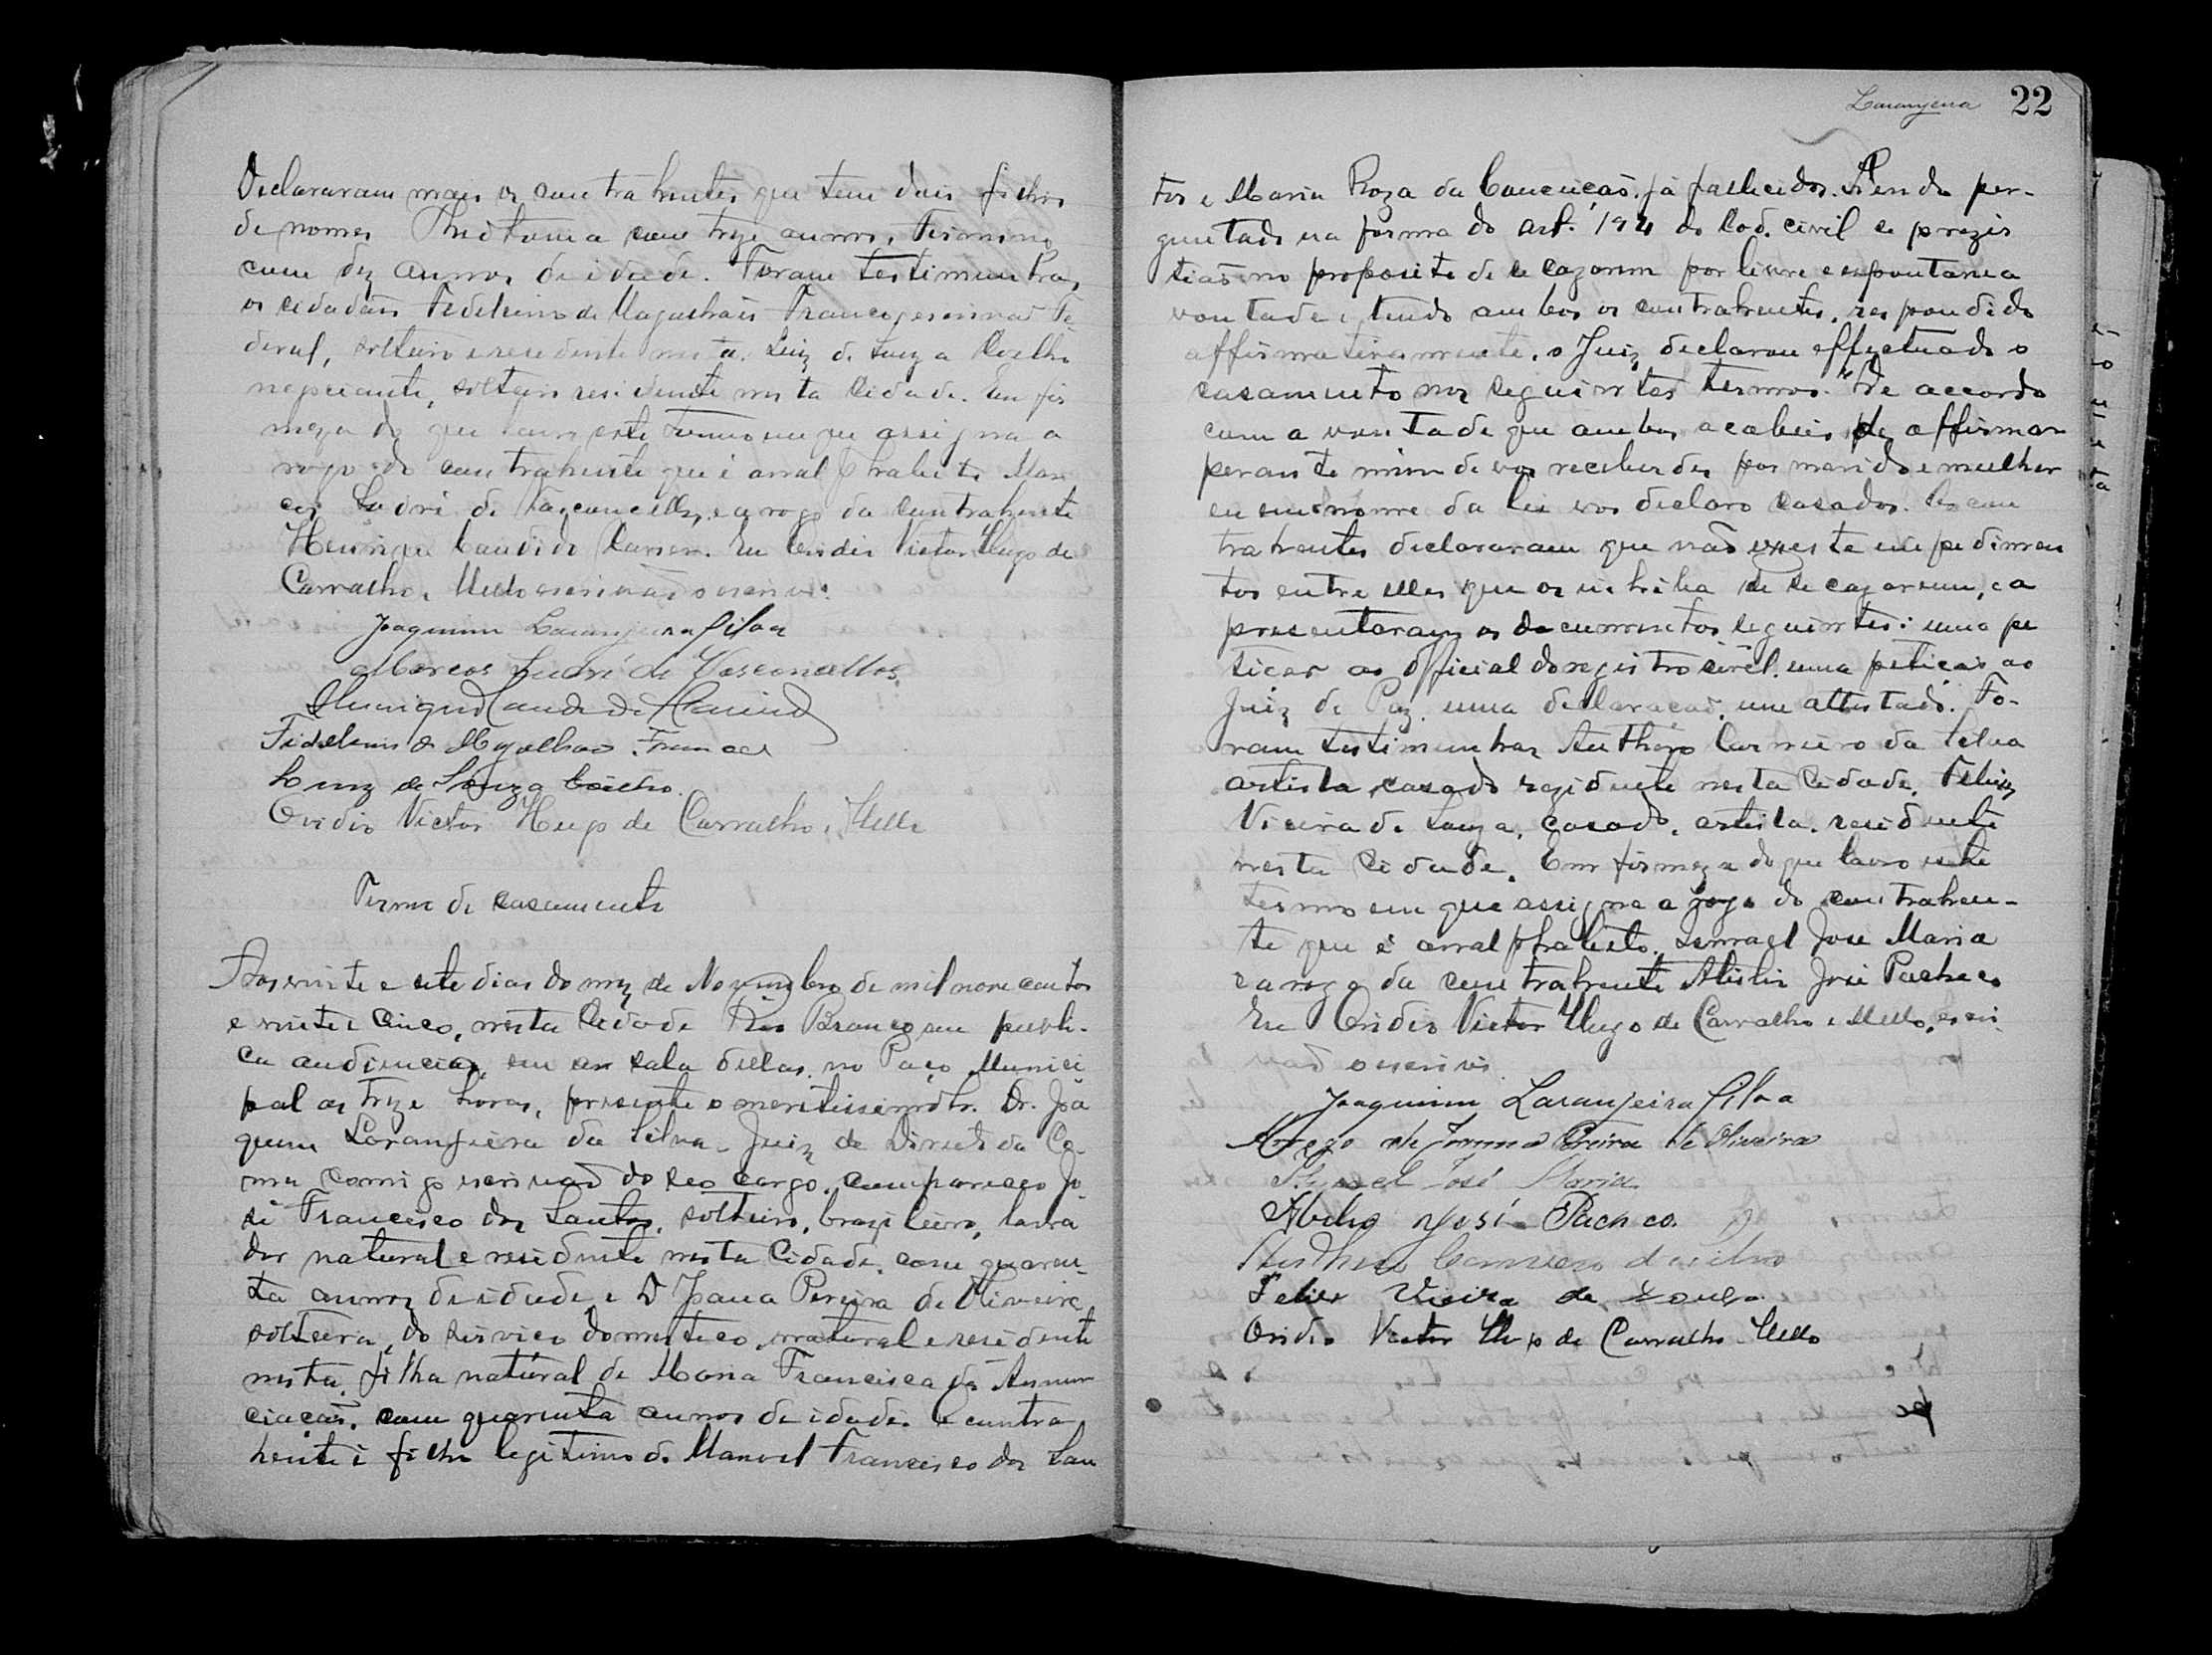 Declararam mais os contrahentes que tem dois filhos
de nomes com treze annos, Firmino
com dez annos de idade. Foram testimunhas
os cidadãos Fidelcino de Magalhães Franco, escrivão Fe-
deral, solteiro e residente nesta, Luiz de Souza Coelho
negociante, solteiro residente nesta Cidade. Em fir
meza do que lavro este termo em que assigna a
rogo do contrahente que é analphabeto Mar
cos de Vasconcellos, e a rogo da contrahente
Henrique Candido . Eu Ovidio Victor Hugo de
Carvalho e Mello escrivão o escrevi.
Joaquim Laranjeira Silva
Marcos de Vasconcellos
Henrique Candido
Fidelcino de Magalhães Franco
Luiz de Souza Coelho.
Ovidio Victor Hugo de Carvalho e Mello
Termo de casamento
Aos vinte e sete dias do mez de Novembro de mil nove centos
e vinte e cinco, nesta Cidade Rio Branco em publi-
ca audiencia, em a sala dellas, no Paço Munici
pal as treze horas, presente o meritissimo Sr. Dr. Joa
quim Laranjeira da Silva - Juiz de Direito da Co-
mca comigo escrivão do seo cargo. compareceo Jo-
sé Francisco dos Santos, solteiro, brazileiro, lavra
dor natural e residente nesta Cidade, com quaren-
ta annos de idade, e D Joana Pereira de Oliveira
solteira, do serviço domestico, natural e residente
nesta, filha natural de Maria Francisca da Annun
ciação, com quarenta annos de idade. o contra
hente é filho legitimo de Manoel Francisco dos San
Laranjeira 22
tos e Maria Roza da Conceição, já fallecidos. Sendo per-
guntado na forma do art. 194 do Cod. civil se prezis
tião no proposito de se cazarem por livre e espontanea
vontade e tendo ambos os contrahentes, respondido
affirmativamente, o Juiz declarou effectuado o
casamento nos seguintes termos. "De accordo
com a vontade que ambos acabeis de affirmar
perante mim de vos receberdes por marido e mulher
eu em nome da lei vos declaro casados. Os con
trahentes declararam que não existe impedimen
tos entre elles que os inhiba de se cazarem, e a
presentaram os documentos seguintes: uma pe
tição ao official do registro civil, uma petição ao
Juiz de Paz, uma declaração, um attestado. Fo-
ram testimunhas Anthero Carneiro da Silva
artista, casado residente nesta Cidade, Felix
Vieira de Souza, casado, artista, residente
nesta Cidade. Em firmeza do que lavro este
termo em que assigna a rogo do contrahen-
te que é analphabeto, Ismael José Maria
e a rogo da contrahente Abilio José Pacheco
Eu Ovidio Victor Hugo de Carvalho e Mello, escri
vão o escrevi.
Joaquim Laranjeira Silva
A rogo de Joanna Pereira de Oliveira
Ismael José Maria
Abilio José Pacheco.
Anthero Carneiro da Silva
Felix Vieira de Souza
Ovidio Victor Hugo de Carvalho Mello